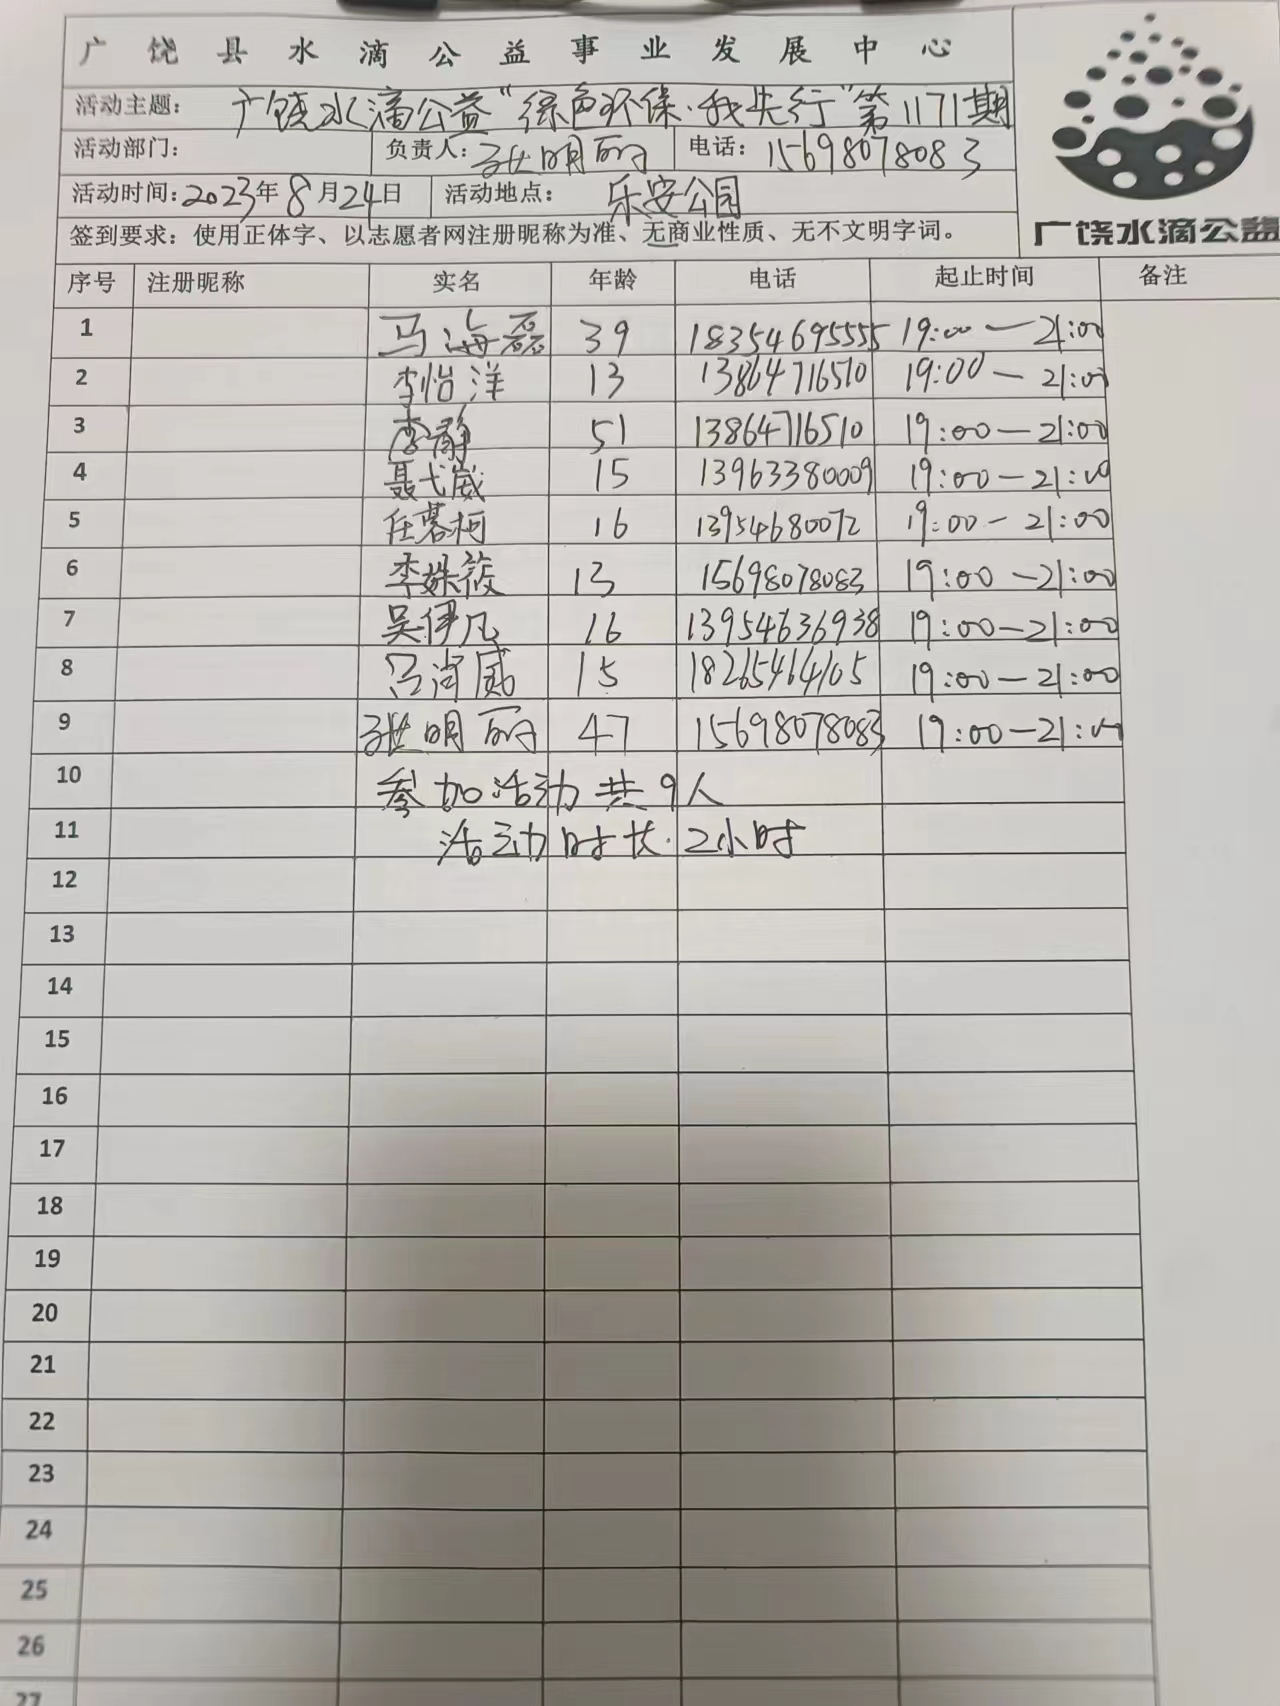 广饶县水滴公益事业发展中心
活动主题： 广饶水滴公益“绿色环保·我先行”第1171期
活动部门： 负责人：张明丽 电话：15698078083
活动时间：2023年8月24日 活动地点： 乐安公园
签到要求：使用正体字、以志愿者网注册昵称为准、无商业性质、无不文明字词。
广饶水滴公益
序号 注册昵称 实名 年龄 电话 起止时间 备注
1 马海磊 39 18354695555 19:00—21:00
2 李怡洋 13 13864716510 19:00—21:00
3 李静 51 13864716510 19:00—21:00
4 聂弋崴 15 13963380009 19:00—21:00
5 任慕柯 16 13954680072 19:00—21:00
6 李姝筱 13 15698078083 19:00—21:00
7 吴伊凡 16 13954636938 19:00—21:00
8 吕尚威 15 18265464105 19:00—21:00
9 张明丽 47 15698078083 19:00—21:00
10 参加活动共9人
11 活动时长·2小时
12
13
14
15
16
17
18
19
20
21
22
23
24
25
26
27